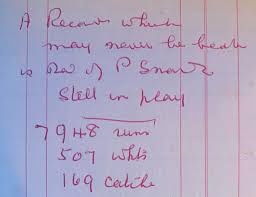 A Record which
may never be beate
is
Still in play
7948 runs
507 whts
169 catche